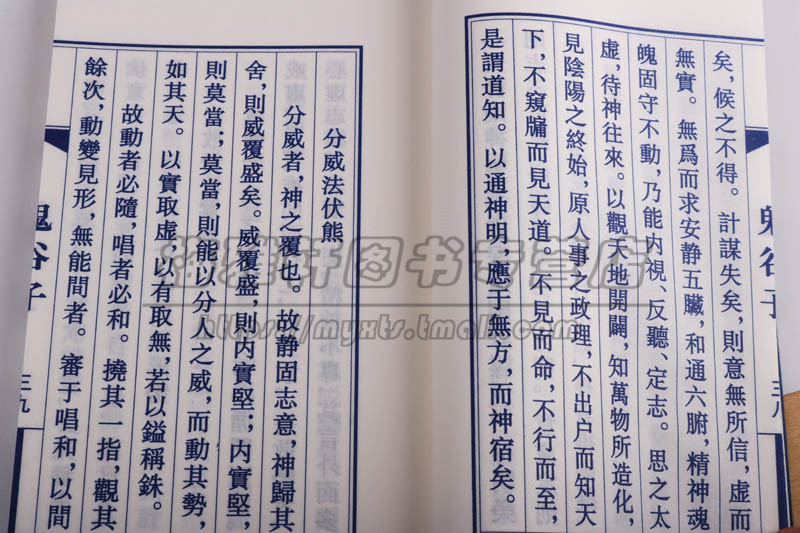 矣，候之不得。計謀失矣，則意無所信，虛而
無實。無爲而求安静五臟，和通六腑，精神魂
魄固守不動，乃能内視、反聽、定志。思之太
虛，待神往來。以觀天地開闢，知萬物所造化，
見陰陽之終始，原人事之政理，不出户而知天
下，不窺牖而見天道。不見而命，不行而至，
是謂道知。以通神明，應于無方，而神宿矣。
鬼谷子
三八
分威法伏熊
分威者，神之覆也。故静固志意，神歸其
舍，則威覆盛矣。威覆盛，則内實堅；内實堅，
則莫當；莫當，則能以分人之威，而動其勢，
如其天。以實取虛，以有取無，若以鎰稱銖。
故動者必隨，唱者必和。撓其一指，觀其
餘次，動變見形，無能間者。審于唱和，以間
鬼谷子
三九
雅軒图书专营店
https://myxts.tmall.com